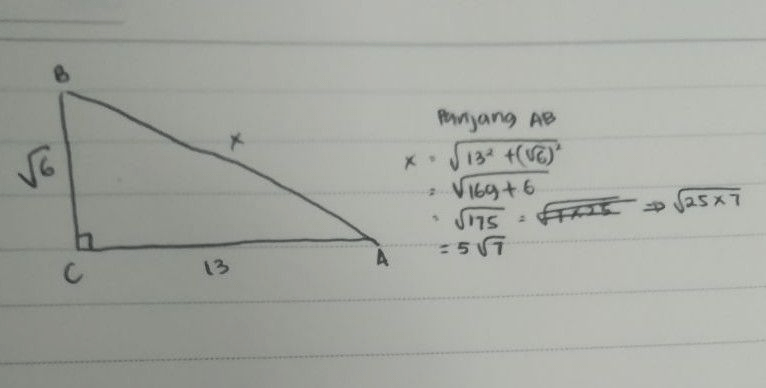 B
x
√6
C
13
A
Panjang AB
x = √13² + (√6)²
= √169 + 6
= √175 = √7×25 ⇒ √25 × 7
= 5√7